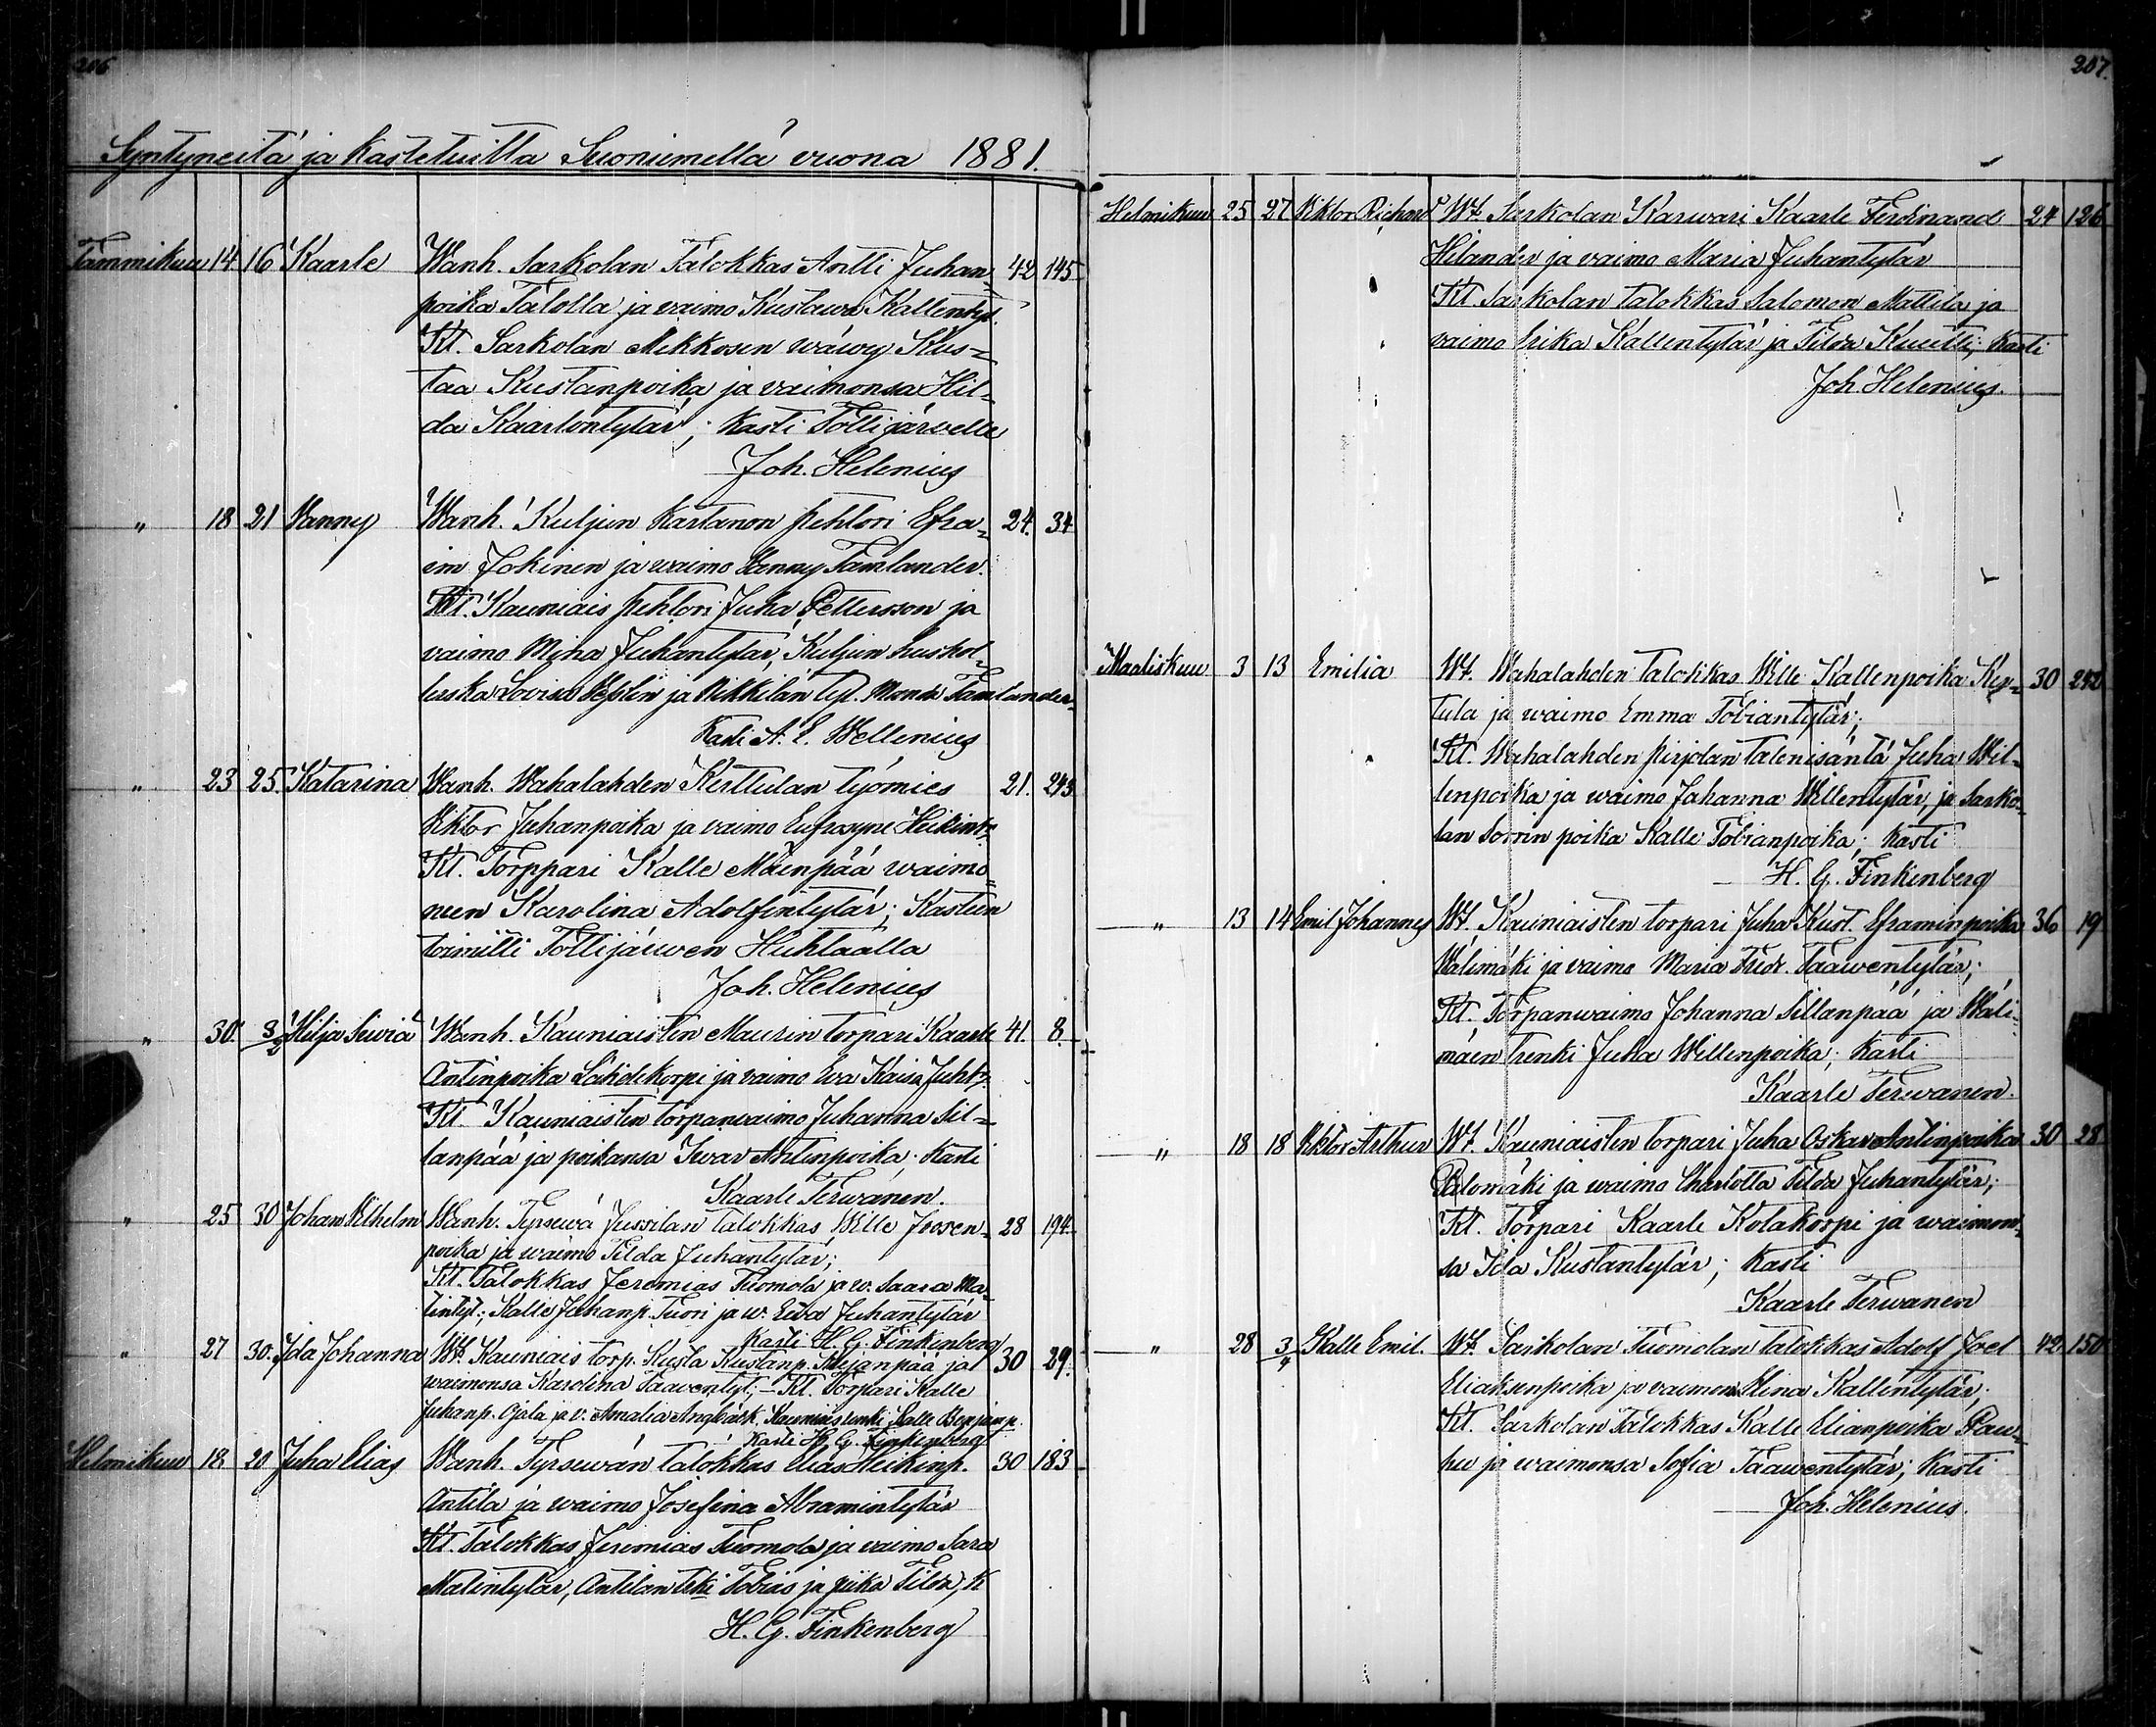 206
Syntyneitä ja Kastetuita Suoniemellä vuona 1881.
Tammikuu 14 16 Kaarle Wanh. Sarkolan Talokkas Antti Juhan- 42 145
poika Talolla ja vaimo Kustawa Kallentyt.
Kt. Sarkolan Mikkosen wäwy Kus-
taa Kustanpoika ja vaimonsa Hil-
da Kaarlontytär; kasti Tottijärvellä
Joh. Helenius
" 18 21 Nanny Wanh. Kuljun kartanon pehtori Efra- 24. 34
im Jokinen ja waimo Nanny Tamlander.
Kt. Kauniais pehtori Juha Pettersson ja
vaimo Mina Juhantytär, Kuljun hushol-
lerska Lovisa ja Nikkilän tyt. Manda Tamlander.
Kasti A. E. Wellenius
" 23 25. Katarina Wanh. Wahalahden Kerttulan työmies 21. 243
Viktor Juhanpoika ja vaimo Eufrosyne Heikint:r
Kt. Torppari Kalle Mäenpää waimo-
neen Karolina Adolfintytär; Kasteen
toimitti Tottijärwen Huhtaalla
Joh. Helenius
" 30. 3/2 Hilja Seiviä Wanh. Kauniaisten Maurin torpari Kaarle 41. 8.
Antinpoika Lähdekorpi ja vaimo Eva Kaisa Juht:r.
Kt. Kauniaisten torpanwaimo Juhanna Sil-
lanpää ja poikansa Iwar Antinpoika; Kasti
Kaarle Terwanen.
" 25 30 Johan Vilhelm Wanh. Tyrsewä Jussilan Talokkas Wille Joosen- 28 194
poika ja waimo Tilda Juhantytär;
Kt. Talokkas Jeremias Tuomola ja w. Saara Ma-
tintyt.; Kalle Juhanp. Tuori ja w. Eeva Juhantytär
Kasti H. G. Finkenberg
" 27 30. Ida Johanna Wt. Kauniais torp. Kusta Kustanp. Ahjanpää ja 30 29.
waimonsa Karolina Taawentyt; – Kt. Torpari Kalle
Juhanp. Ojala ja v. Amalia Kauniais renki Kalle Benjamp.
Kasti H. G. Finkenberg
Helmikuu 18 20 Juha Elias Wanh. Tyrsewän talokkas Elias Heikinp. 30 183
Antila ja waimo Josefina Abramintytär
Kt. Talokkas Jeremias Tuomola ja vaimo Sara
Matintytär, Antilan Tobias ja piika Tilda, K
H. G. Finkenberg
207.
Helmikuu 25 27 Viktor Richard Wt. Sarkolan Karwari Kaarle Ferdinand 24 126
Helander ja vaimo Maria Juhantytär
Kt. Sarkolan talokkas Salomon Mattila ja
vaimo Erika Kallentytär ja Tilda Knutti; Kasti
Joh. Helenius.
Maaliskuu 3 13 Emilia Wt. Wahalahden Talokkas Wille Kallenpoika Ker- 30 242
tula ja waimo Emma Tobiantytär;
Kt. Wahalahden Pirjolan talonisäntä Juha Wil-
lenpoika ja waimo Johanna Willentytär, ja Sarko-
lan Sorrin poika Kalle Tobianpoika; Kasti
H. G. Finkenberg
" 13 14 Emil Johannes Wt. Kauniaisten torpari Juha Kust. Eframinpoika 36 19
Wälimäki ja vaimo Maria Fredr. Taawentytär;
Kt. Torpanwaimo Johanna Sillanpää ja Wäli-
mäen renki Juha Willenpoika; Kasti
Kaarle Terwanen.
" 18 18 Viktor Arthur Wt. Kauniaisten torpari Juha Oskar Antinpoika 30 28
Palomäki ja waimo Charlotta Tilda Juhantytär;
Kt. Torpari Kaarle Kolakorpi ja waimon-
sa Ida Kustantytär; Kasti
Kaarle Terwanen
" 28 3/4 Kalle Emil. Wt. Sarkolan Tuomolan talokkas Adolf Joel 42 150
Eliaksenpoika ja vaimonsa Stina Kallentytär;
Kt. Sarkolan Talokkas Kalle Elianpoika Paw-
hu ja waimonsa Sofia Taawentytär; Kasti
Joh. Helenius.